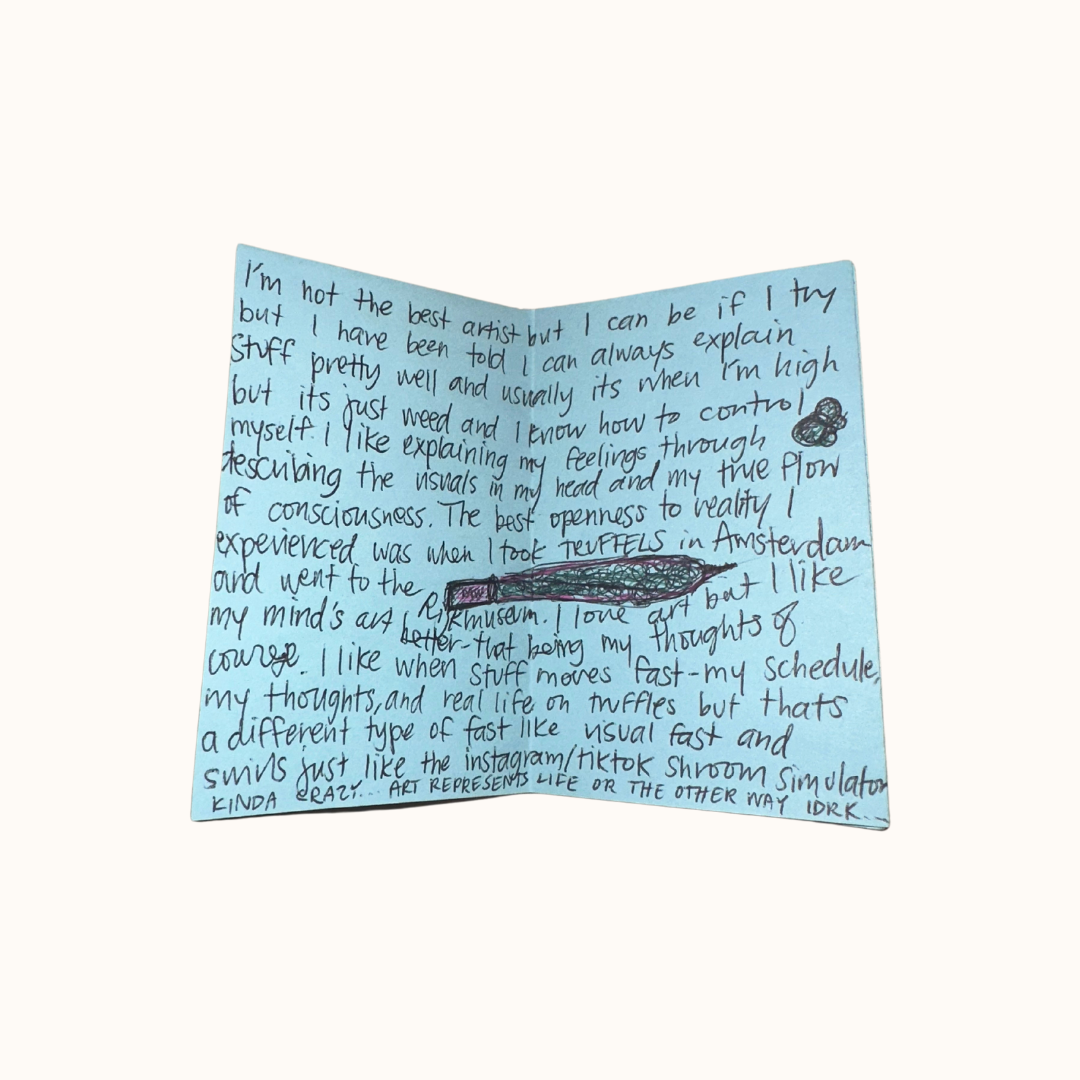 I'm not the best artist but I can be if I try
but I have been told I can always explain
Stuff pretty well and usually its when I'm high
but its just weed and I know how to control
myself. I like explaining my feelings through
describing the usuals in my head and my true flow
of consciousness. The best openness to reality I
experienced was when I took TRUFFELS in Amsterdam
and went to the Rijkmuseum. I love art but I like
my mind's art better-that being my thoughts of
course. I like when stuff moves fast-my schedule,
my thoughts, and real life on truffles but thats
a different type of fast like visual fast and
swirls just like the instagram/tiktok shroom simulator
KINDA CRAZY... ART REPRESENTS LIFE OR THE OTHER WAY IDRK...